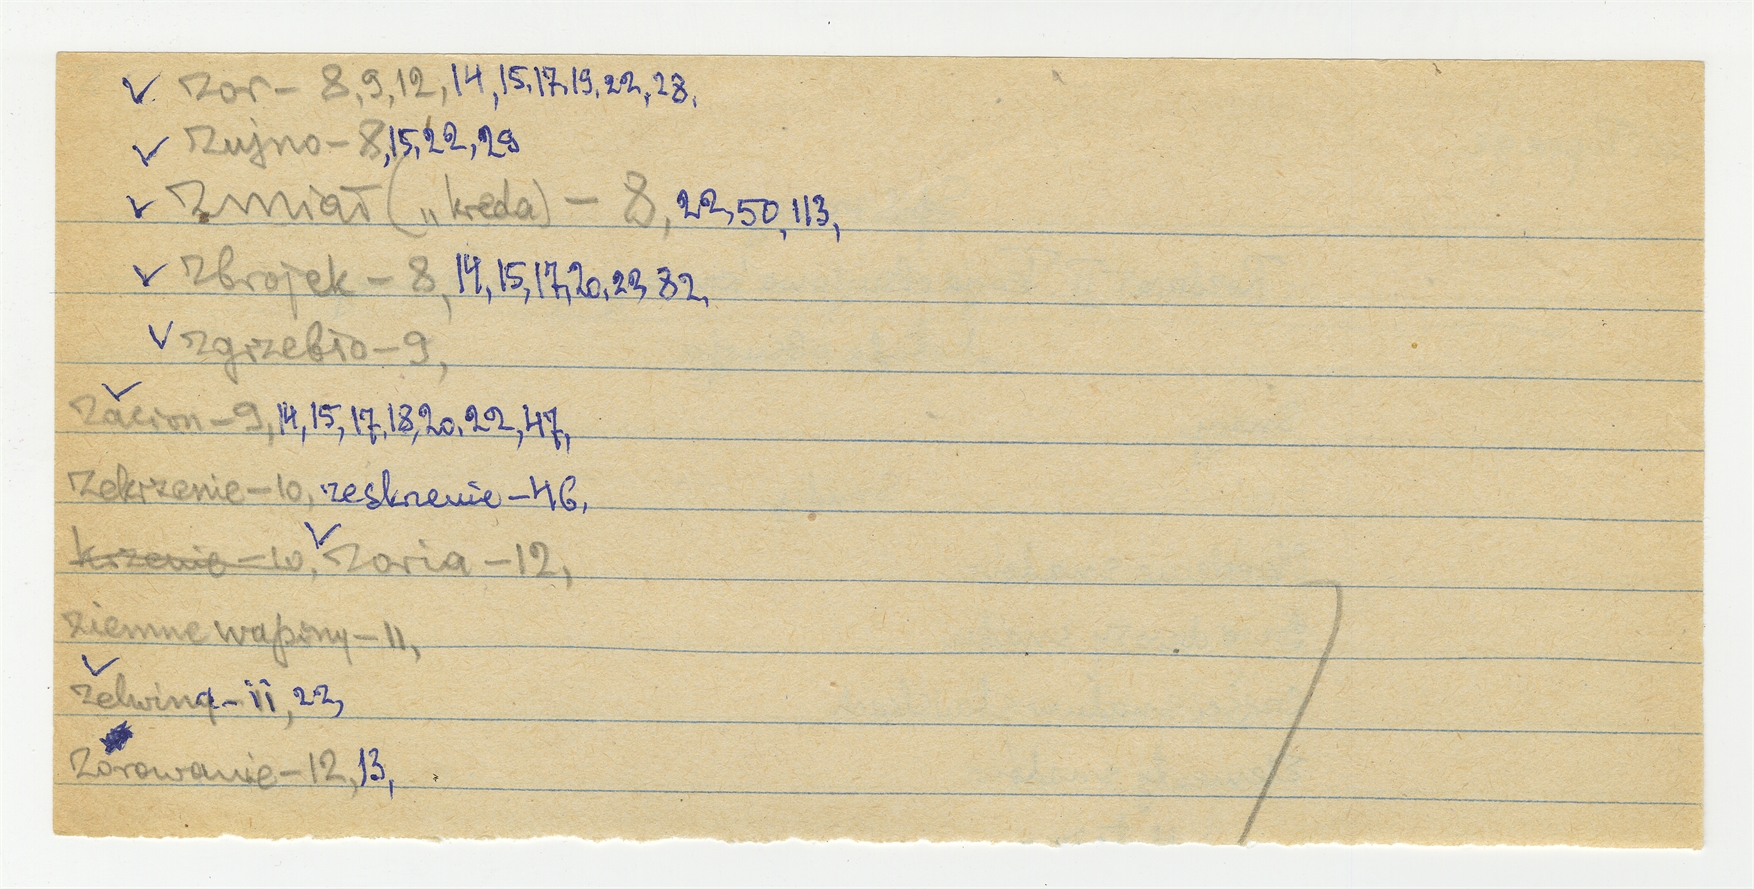 ✓ zor – 8, 9, 12, 14, 15, 17, 19, 22, 28,
✓ zujno – 8, 15, 22, 29
✓ zmiał („kreda) – 8, 22, 50, 113,
✓ zbrojek – 8, 14, 15, 17, 20, 22, 82,
✓ zgrzebło – 9,
✓ zacion – 9, 14, 15, 17, 18, 20, 22, 47,
zekrzenie – 10, zeskrzenie – 46,
krzenie – 10, ✓ zoria – 12,
ziemne wapiny – 11,
✓ zelwina – 11, 22,
zorowanie – 12, 13,